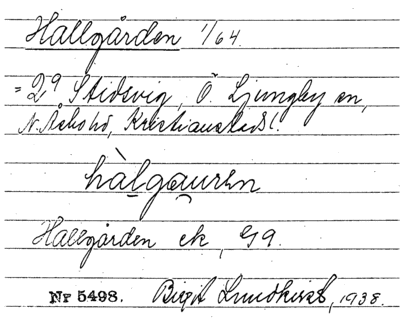 Hallgården 1/64.
= 2⁹ Stidsvig, Ö. Ljungby sn,
N. Åsbohd, Kristianstads l.
hàlgauren
Hallgården ek, G9.
Nr 5498. Birgit Lundkvist, 1938.